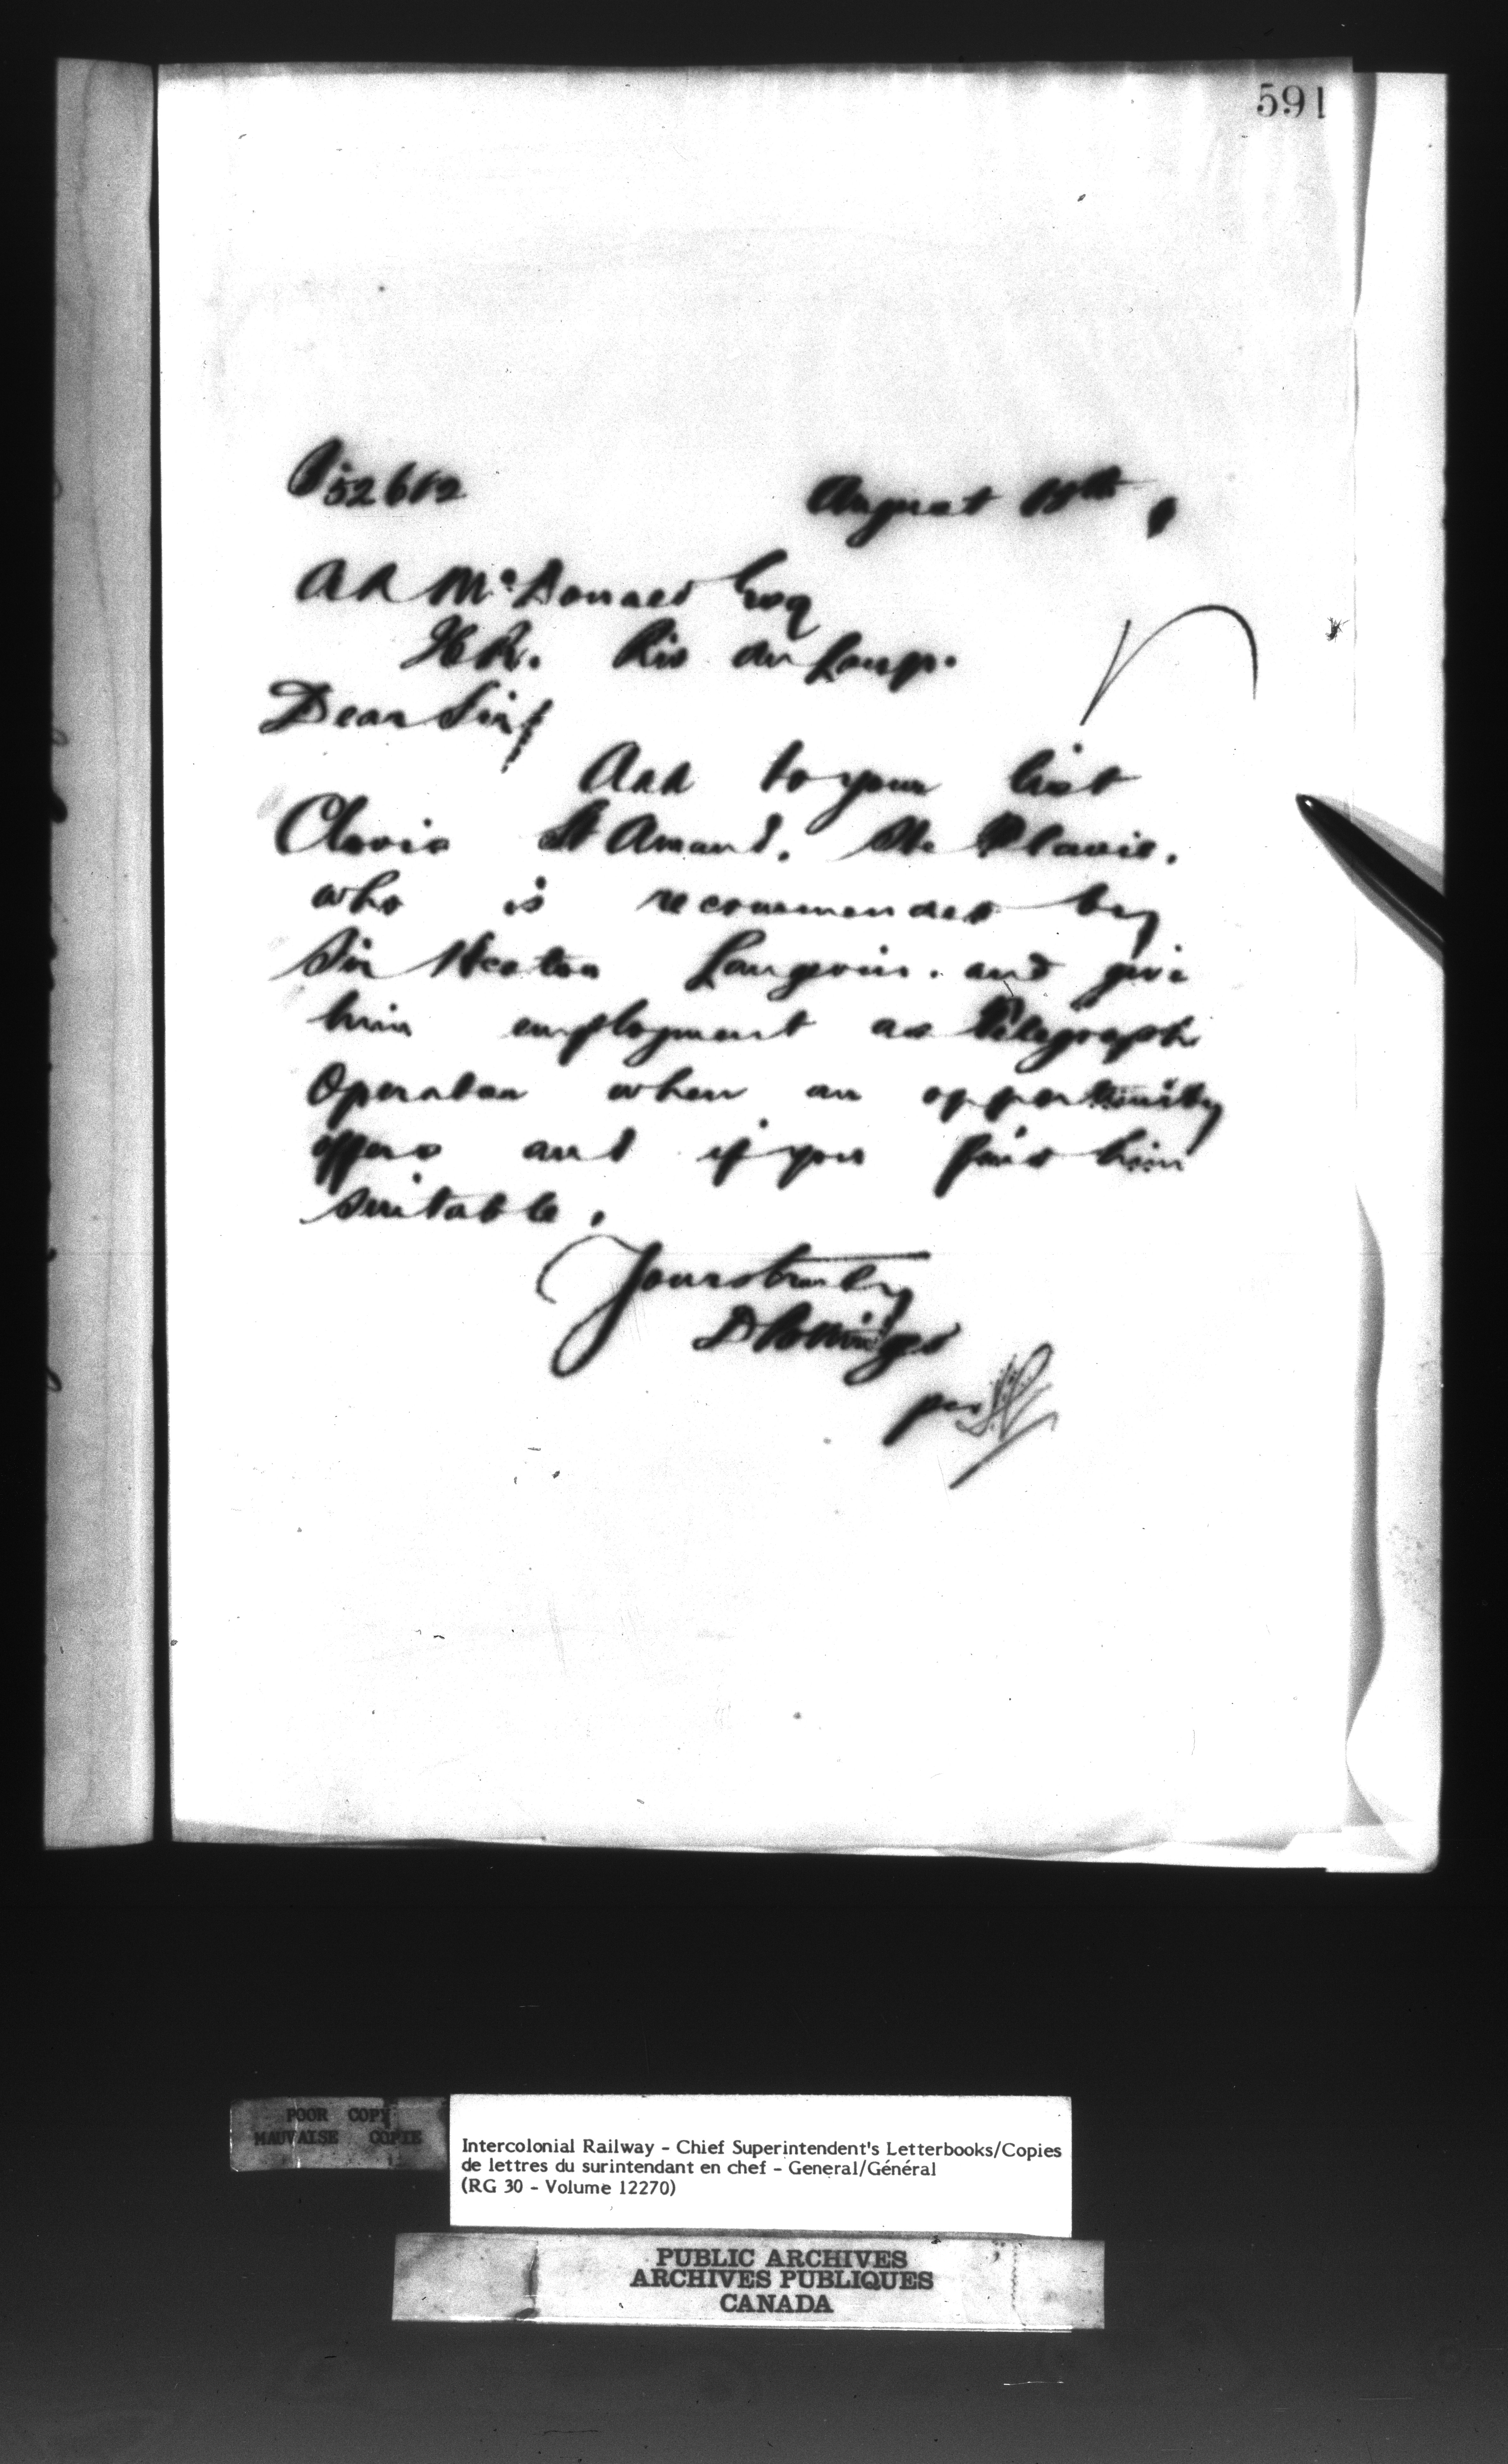 591
52612
August 19th
A R McDonald Esq
Riv du Loup.
Dear Sir,
Add to your list
Clovis St Amand. Ste Flavie.
who is recommended by
Sir Hector Langevin. and give
him employment as Telegraph
Operator when an opportunity
offers and if you find him
suitable.
Yours truly
D Pottinger
per
POOR COPY
MAUVAISE COPIE
Intercolonial Railway - Chief Superintendent's Letterbooks/Copies
de lettres du surintendant en chef - General/Général
(RG 30 - Volume 12270)
PUBLIC ARCHIVES
ARCHIVES PUBLIQUES
CANADA